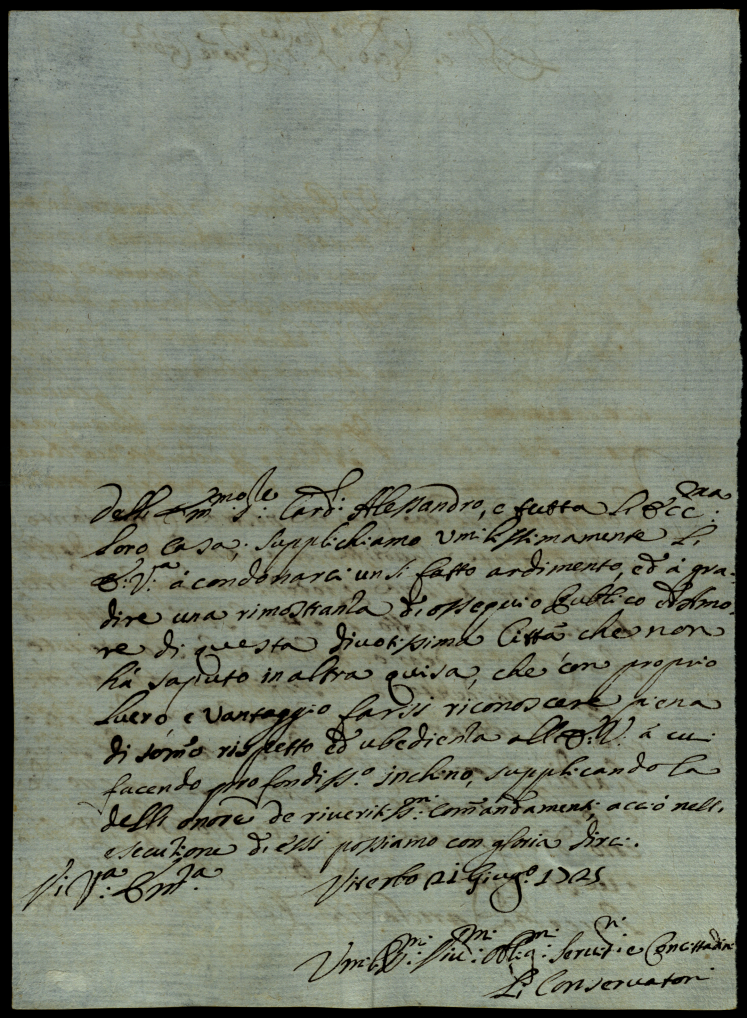 dell' Em.mo Sig.re Card.l Alessandro, e tutta l'Ecc.ma
loro Casa; supplichiamo umilissimamente l'
E: V.ra à condonarci un si fatto ardimento, ed à gra-
dire una rimostranza di ossequio Publico ed Amo-
re di questa divotissima Città che non
hà saputo in altra guisa, che con proprio
lucro e vantaggio farsi riconoscere piena
di som̃o rispetto ed ubedienza all' E: V. à cui
facendo profondiss.o inchino, supplicando la
dell' onore de riveritiss.mi Com̃andamenti acciò nell'
esecuzione di essi possiamo con gloria dirci.
Di V.ra Em.za
Viterbo 21 Giug.o 1721
Umil.mi Div.mi Obl.mi Servit.ri e Concittadini
Li Conservatori